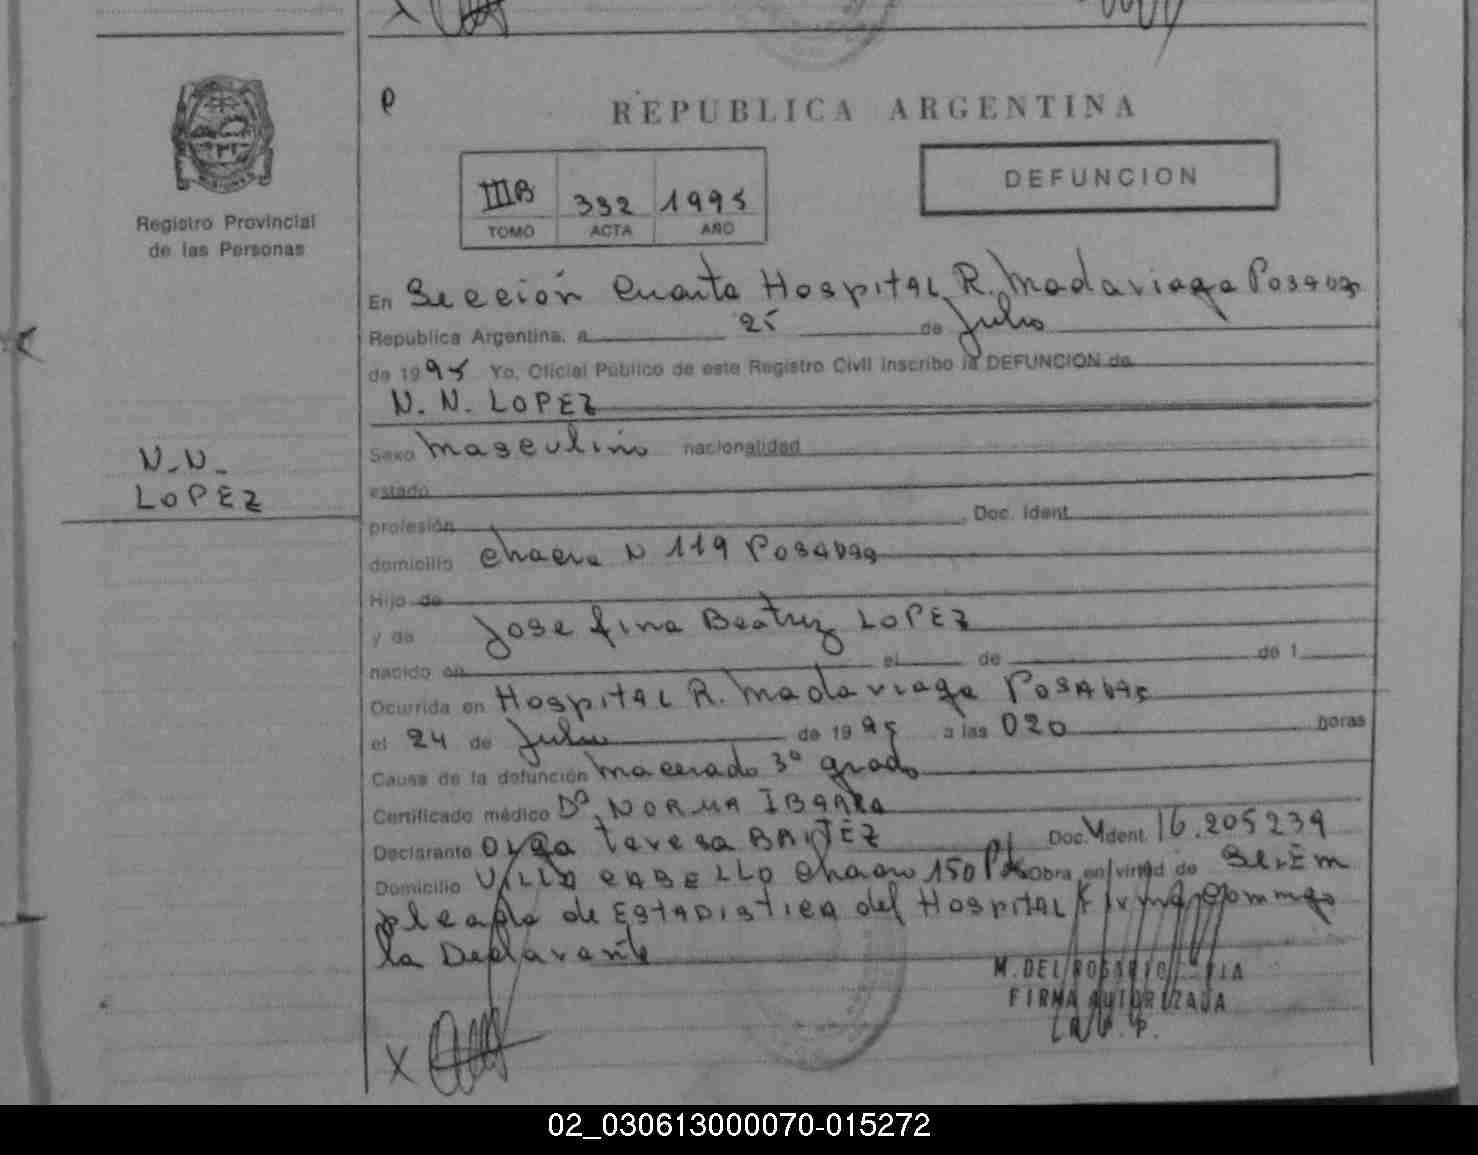 REPUBLICA ARGENTINA
DEFUNCION
IIIB 332 1995
TOMO ACTA AÑO
Registro Provincial
de las Personas
En Sección Cuarta Hospital R. Madariaga Posadas
Republica Argentina, a 25 de Julio
de 1995 Yo, Oficial Público de este Registro Civil inscribo la DEFUNCION de
N. N. LOPEZ
N.N.
LOPEZ
Sexo Masculino nacionalidad
estado
profesión Doc. Ident.
domicilio Chacra N 119 Posadas
Hijo de
y de Josefina Beatriz LOPEZ
nacido en el de de 1
Ocurrida en Hospital R. Madariaga Posadas
el 24 de Julio de 1995 a las 020 horas
Causa de la defunción Macerado 3º grado
Certificado médico Dª NORMA IBARRA
Declarante Olga Teresa Doc. Ident. 16.205239
Domicilio Villa Cabello Chacra 150 Pdas Obra en virtud de Ser Em
pleada de Estadistica del Hospital Firma conmigo
la Declarante
M. DEL ROSARIO
FIRMA AUTORIZADA
X
02_030613000070-015272